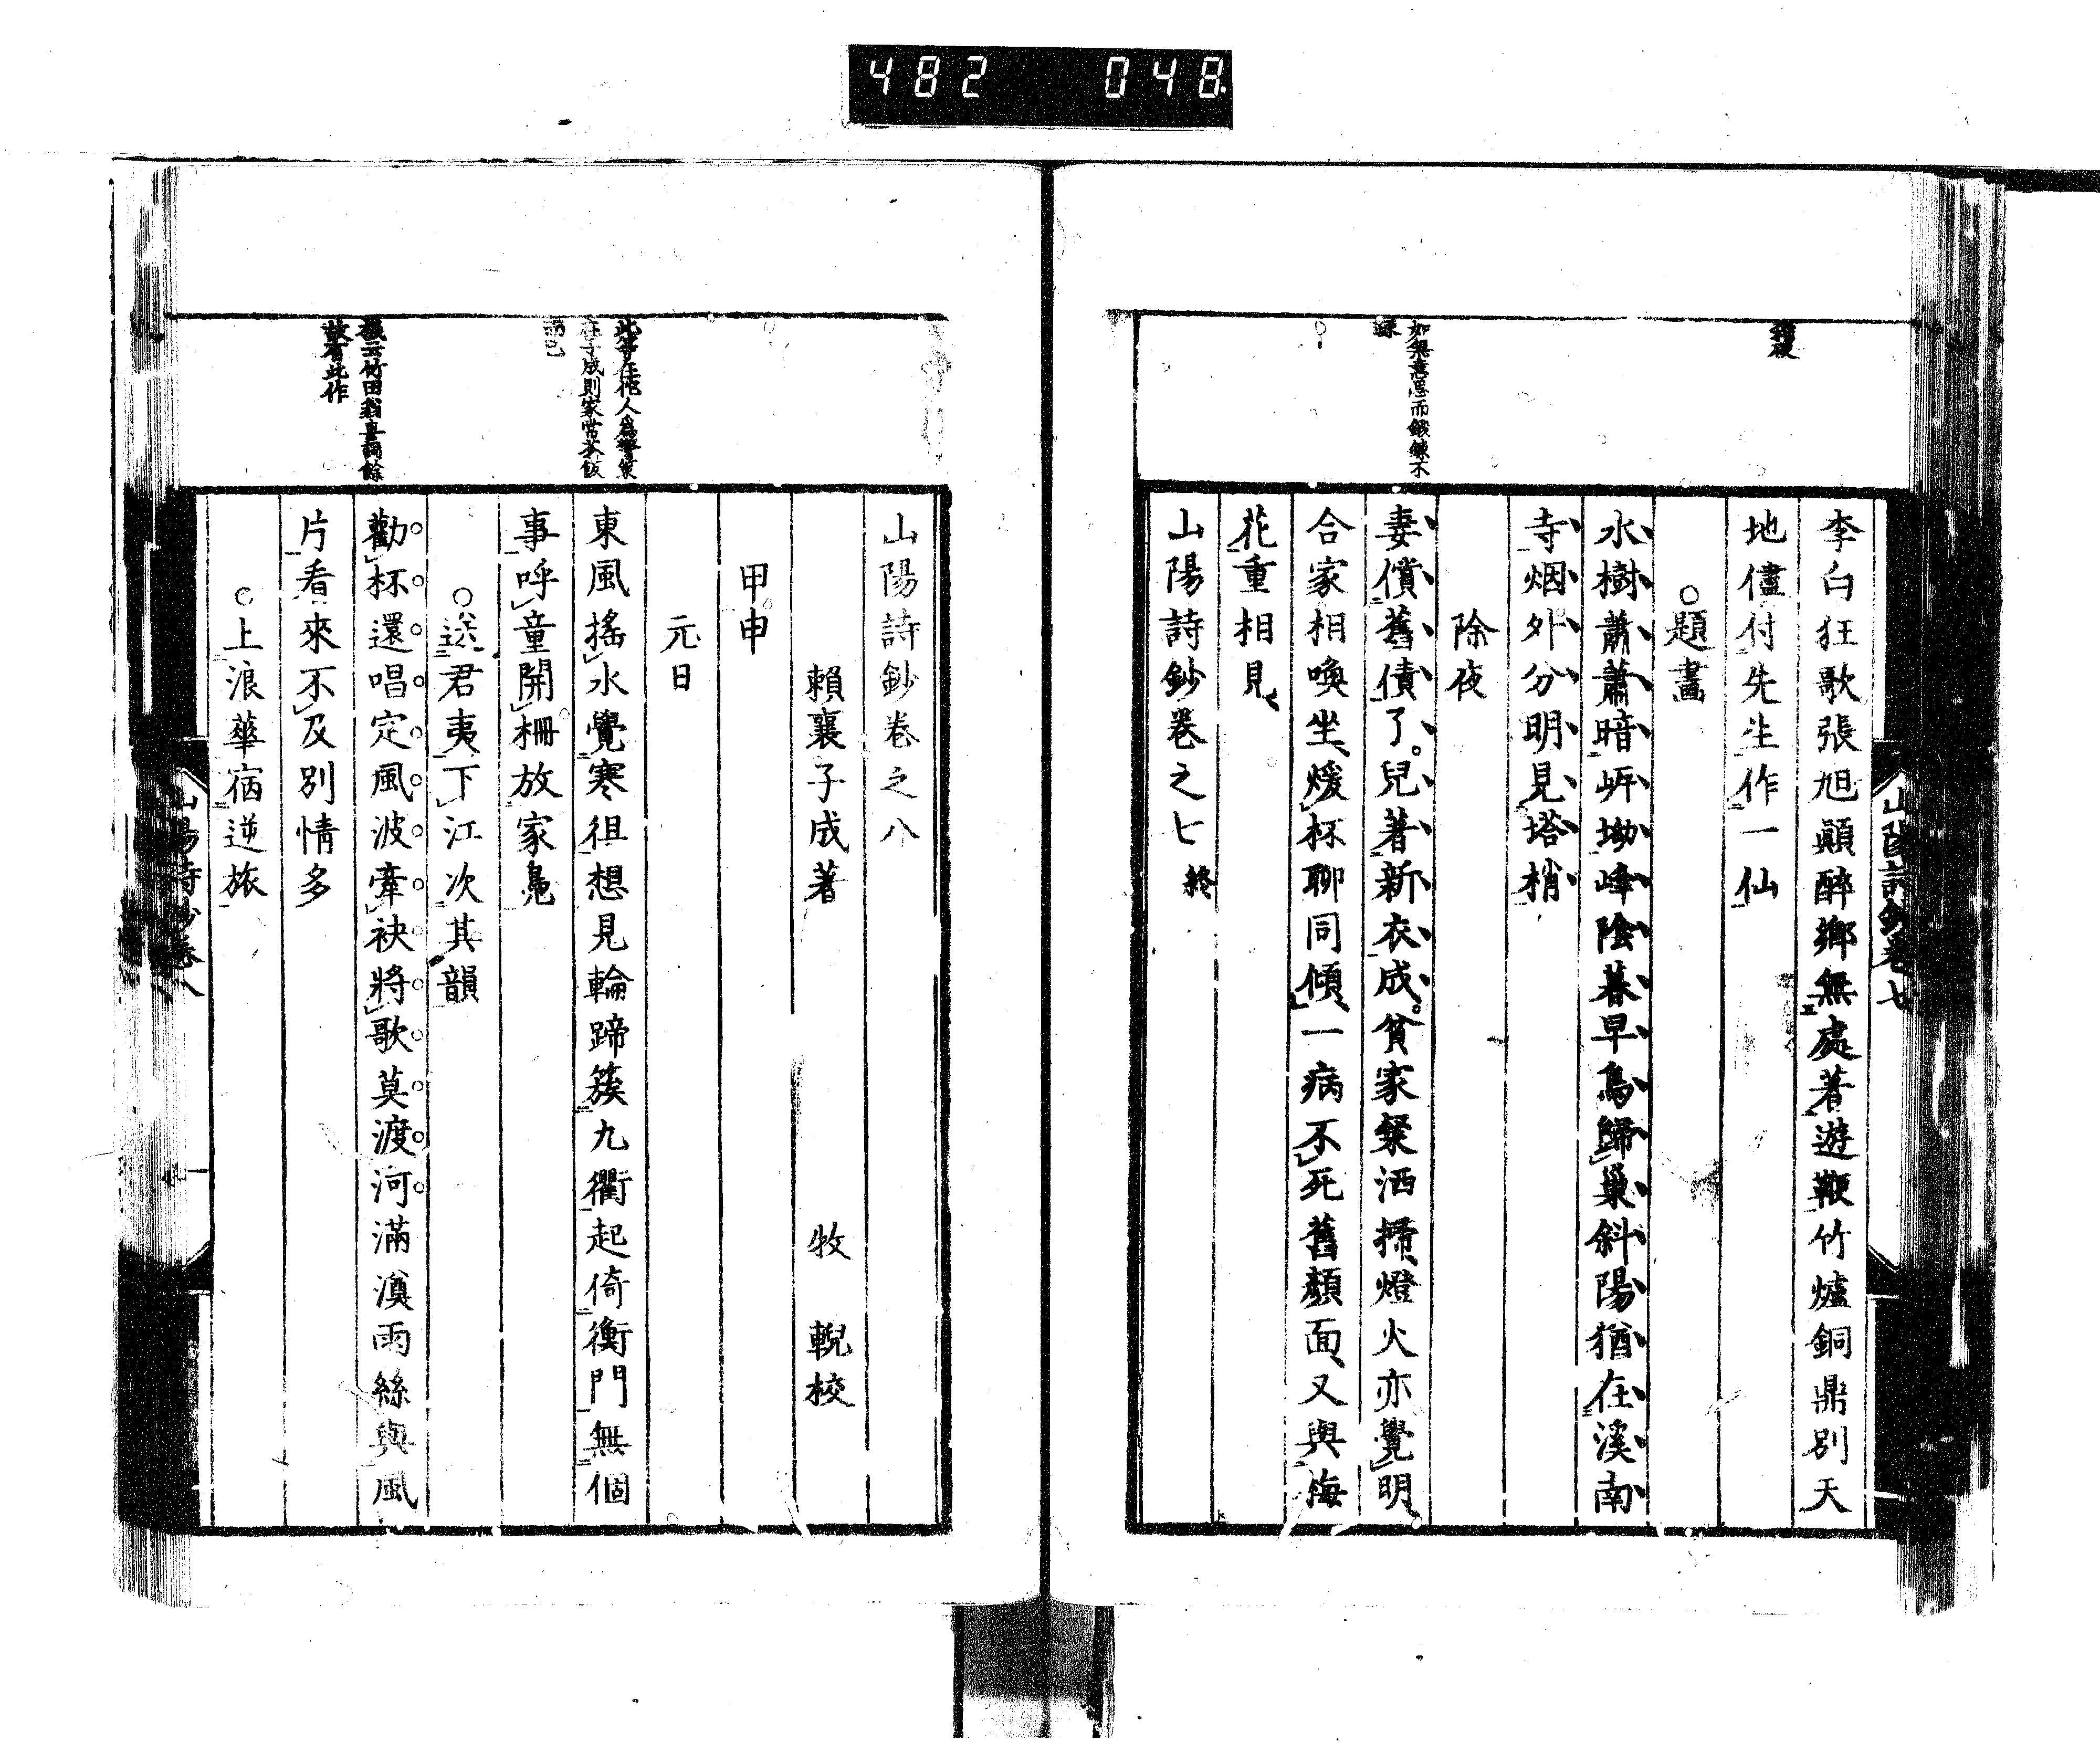 482 048
李白狂歌張旭顛醉鄉無處著遊鞭竹爐銅鼎別天
地儘付先生作一仙
○題畫
水樹蕭蕭暗岍坳峰陰暮早鳥歸巢斜陽猶在溪南
寺烟外分明見塔梢
除夜
妻償舊債了兒著新衣成貧家粲洒掃燈火亦覺明
合家相喚坐煖杯聊同傾一病不死舊顏面又與梅
花重相見
山陽詩鈔卷之七 終
如無意思而鍛鍊不
山陽詩鈔卷七
山陽詩鈔卷之八
賴襄子成著 牧 輗校
甲申
元日
東風搖水覺寒徂想見輪蹄簇九衢起倚衡門無個
事呼童開柵放家鳧
○送君夷下江次其韻
勸杯還唱定風波牽袂將歌莫渡河滿澳雨絲與風
片看來不及別情多
○上浪華宿逆旅
此等在他人為警策
在子成則家常茶飯
而已
竹田翁喜詞餘
故有此作
山陽詩鈔卷八